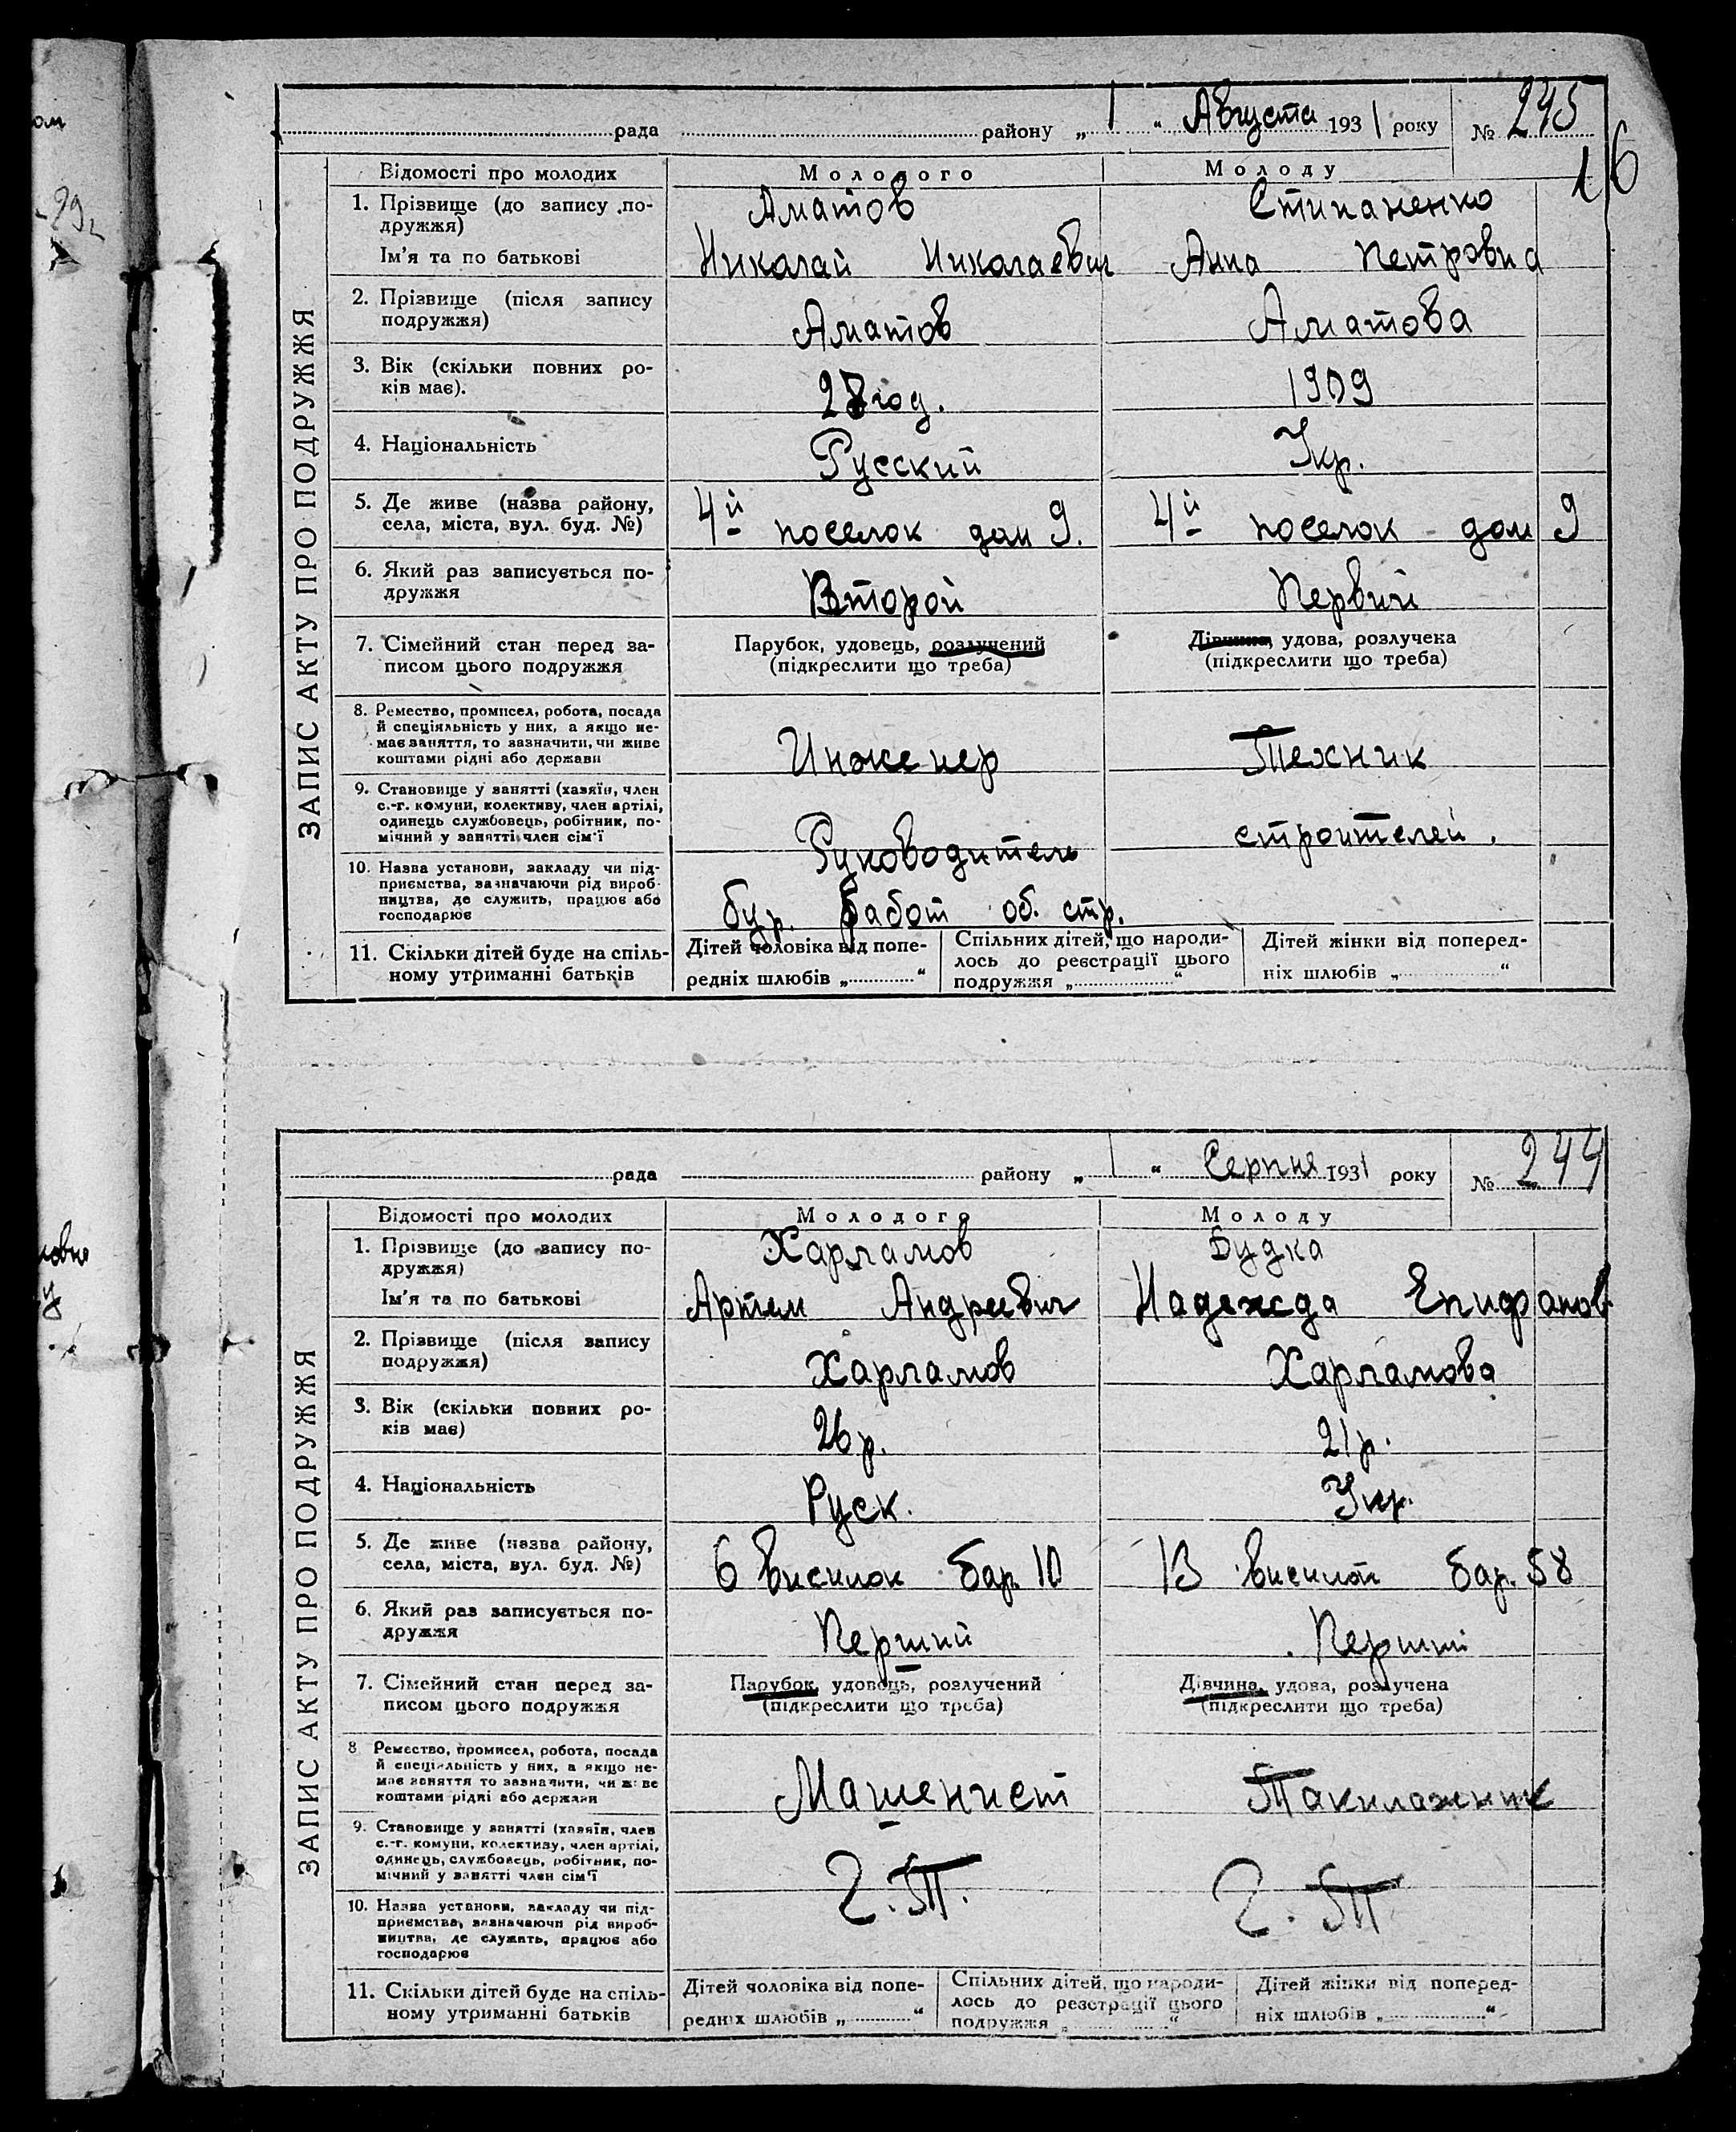 рада района „ 1 “ Августа 1931 року № 245
16
ЗАПИС АКТУ ПРО ПОДРУЖЖЯ
Відомості про молодих Молодого Молоду
1. Прізвище (до запису по-
дружжя) Аматов Стипаненко
Ім'я та по батькові Николай Николаевич Анна Петровна
2. Прізвище (після запису
подружжя) Аматов Аматова
3. Вік (скільки повних ро-
ків має). 28 год. 1909
4. Національність Русский Укр.
5. Де живе (назва району,
села, міста, вул. буд. №) 4й поселок дом 9. 4й поселок дом 9
6. Який раз записується по-
дружжя Второй Первий
7. Сімейний стан перед за-
писом цього подружжя
Парубок, удовець, розлучений
(підкреслити що треба)
Дівчина, удова, розлучена
(підкреслити що треба)
8. Ремество, промисел, робота, посада
й спеціяльність у них, а якщо не-
має заняття, то зазначити, чи живе
коштами рідні або держави
Инженер Техник
9. Становище у занятті (хазяїн, член
с.-г. комуни, колективу, член артілі,
одинець службовець, робітник, по-
мічний у занятті член сім'ї
Руководитель строителей.
10. Назва установи, закладу чи під-
приємства, зазначаючи рід вироб-
ництва, де служить, працює або
господарює
бур. работ об. стр.
11. Скільки дітей буде на спіль-
ному утриманні батьків
Дітей чоловіка від попе-
редніх шлюбів „ “
Спільних дітей, що народи-
лось до реєстрації цього
подружжя „ “
Дітей жінки від поперед-
ніх шлюбів „ “
рада району „ 1 “ Серпня 1931 року № 244
ЗАПИС АКТУ ПРО ПОДРУЖЖЯ
Відомості про молодих Молодого Молоду
1. Прізвище (до запису по-
дружжя) Харламов Будка
Ім'я та по батькові Артем Андреевич Надежда Епифанов
2. Прізвище (після запису
подружжя) Харламов Харламова
3. Вік (скільки повних ро-
ків має) 26 р. 21 р.
4. Національність Руск. Укр.
5. Де живе (назва району,
села, міста, вул. буд. №) 6 висилок бар. 10 13 висилок бар. 58
6. Який раз записується по-
дружжя Перший Перший
7. Сімейний стан перед за-
писом цього подружжя
Парубок, удовець, розлучений
(підкреслити що треба)
Дівчина, удова, розлучена
(підкреслити що треба)
8 Ремество, промисел, робота, посада
й спеціяльність у них, а якщо не-
має заняття то зазначити, чи живе
коштами рідні або держави
Машенист Такилажник
9. Становище у занятті (хазяїн, член
с.-г. комуни, колективу, член артілі,
одинець, службовець, робітник, по-
мічний у занятті член сім'ї
Г. Т. Г. Т.
10. Назва установи, закладу чи під-
приємства, зазначаючи рід вироб-
ництва, де служить, працює або
господарює
11. Скільки дітей буде на спіль-
ному утриманні батьків
Дітей чоловіка від попе-
редніх шлюбів „ “
Спільних дітей, що народи-
лось до реєстрації цього
подружжя „ “
Дітей жінки від поперед-
ніх шлюбів „ “